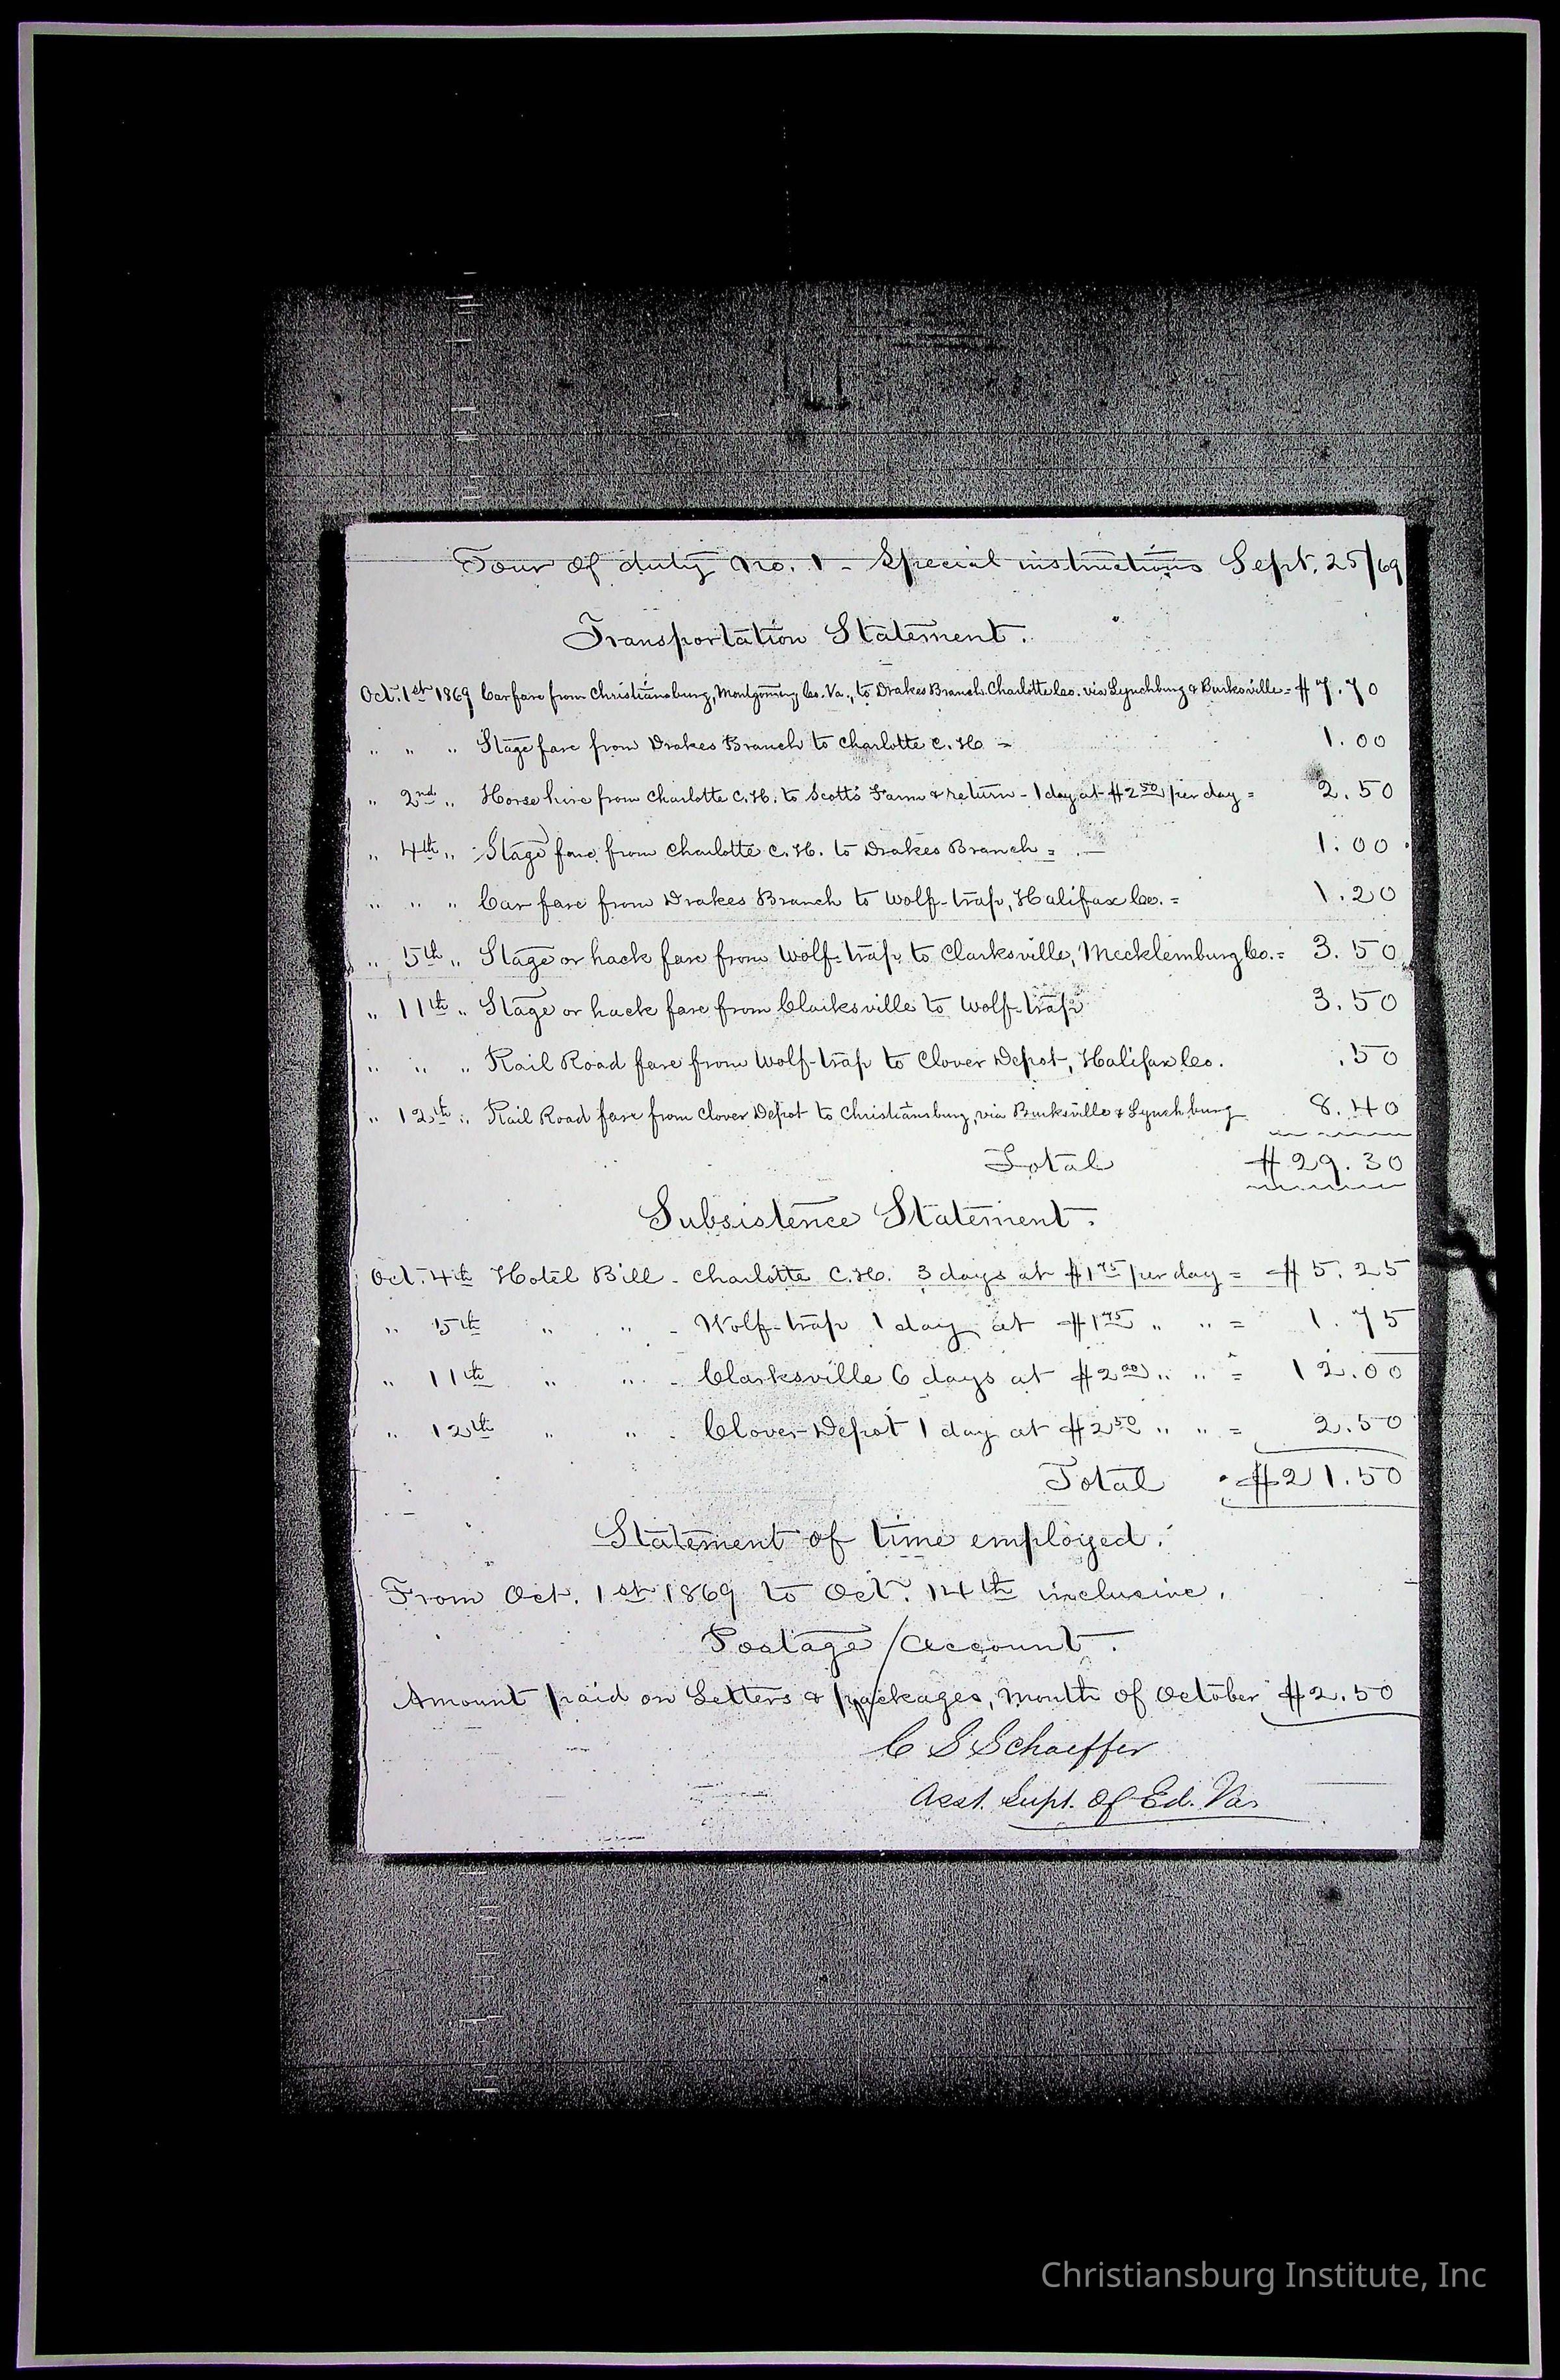 Tour of duty No. 1 - Special instructions Sept. 25/69
Transportation Statement.
Oct. 1st 1869 Car fare from Christiansburg, Montgomery Co. Va., to Drakes Branch Charlotte Co. via Lynchburg & Burksville = $7.70
" " " Stage fare from Drakes Branch to Charlotte C. H. = 1.00
" 2nd " Horse hire from Charlotte C. H. to Scotts Farm & return - 1 day at $2 50 per day = 2.50
" 4th " Stage fare from Charlotte C. H. to Drakes Branch = 1.00
" " " Car fare from Drakes Branch to Wolf-trap, Halifax Co. = 1.20
" 5th " Stage or hack fare from Wolf-trap to Clarksville, Mecklemburg Co. = 3.50
" 11th " Stage or hack fare from Clarksville to Wolf-trap 3.50
" " " Rail Road fare from Wolf-trap to Clover Depot, Halifax Co. .50
" 12th " Rail Road fare from Clover Depot to Christiansburg, via Burksville & Lynchburg 8.40
Total $29.30
Subsistence Statement.
Oct. 4th Hotel Bill - Charlotte C. H. 3 days at $1 75 per day = $5.25
" 5th " " - Wolf-trap 1 day at $1 75 " " = 1.75
" 11th " " - Clarksville 6 days at $2 00 " " = 12.00
" 12th " " - Clover Depot 1 day at $2 50 " " = 2.50
Total $21.50
Statement of time employed.
From Oct. 1st 1869 to Oct. 14th inclusive.
Postage Account.
Amount paid on Letters & packages, month of October $2.50
C S Schaeffer
Asst. Supt. of Ed. Va.
Christiansburg Institute, Inc